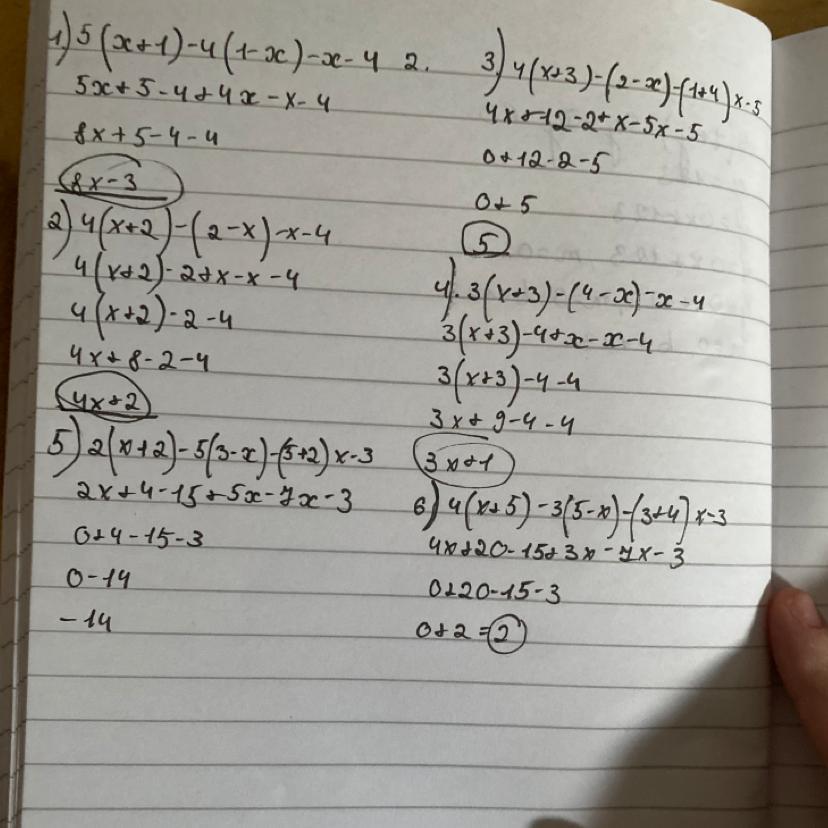 1) 5(x+1)-4(1-x)-x-4 2.
5x+5-4+4x-x-4
8x+5-4-4
8x-3
2) 4(x+2)-(2-x)-x-4
4(x+2)-2+x-x-4
4(x+2)-2-4
4x+8-2-4
4x+2
5) 2(x+2)-5(3-x)-(5+2)x-3
2x+4-15+5x-7x-3
0+4-15-3
0-14
-14
3) 4(x+3)-(2-x)-(1+4)x-5
4x+12-2+x-5x-5
0+12-2-5
0+5
5
4). 3(x+3)-(4-x)-x-4
3(x+3)-4+x-x-4
3(x+3)-4-4
3x+9-4-4
3x+1
6) 4(x+5)-3(5-x)-(3+4)x-3
4x+20-15+3x-7x-3
0+20-15-3
0+2=2